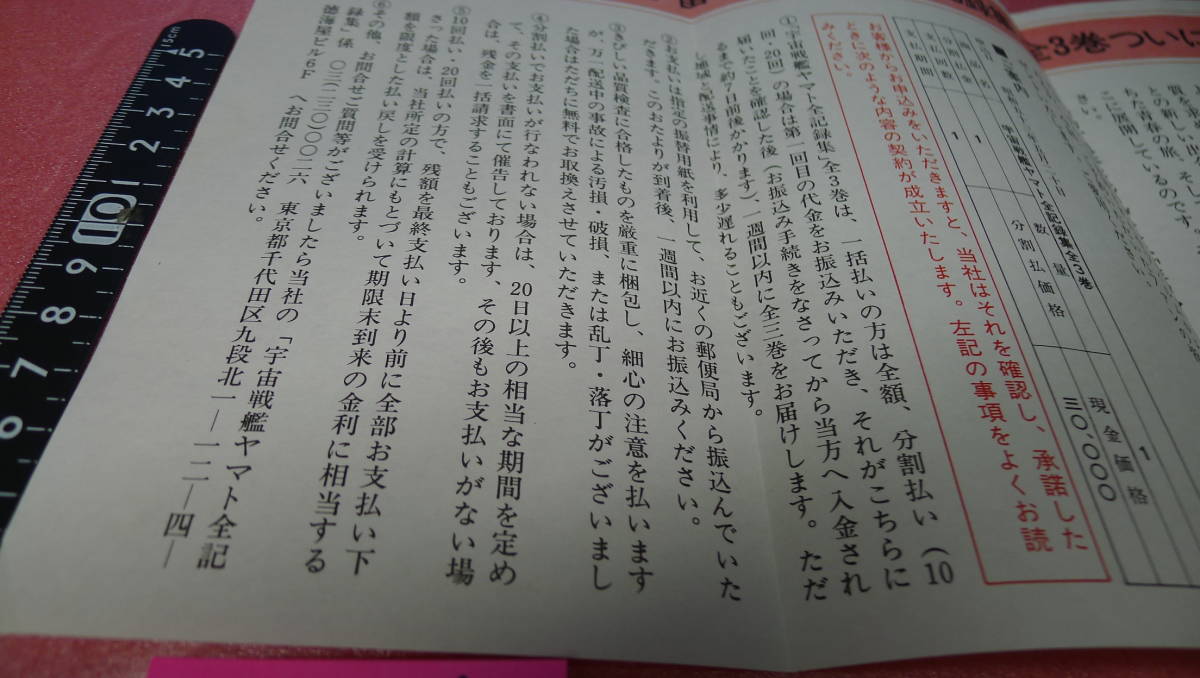 全3巻ついに
■ご案内
宇宙戦艦ヤマト全記録集全3巻
数量
1
分割払価格
現金価格
三〇、〇〇〇
商品名
分割払金
1
支払回数
1
支払期間
お客様からお申込みをいただきますと、当社はそれを確認し、承諾した
ときに次のような内容の契約が成立いたします。左記の事項をよくお読
みください。
①「宇宙戦艦ヤマト全記録集」全3巻は、一括払いの方は全額、分割払い（10
回・20回）の場合は第一回目の代金をお振込みいただき、それがこちらに
届いたことを確認した後（お振込み手続きをなさってから当方へ入金され
るまで約7日前後かかります）、一週間以内に全三巻をお届けします。ただ
し地域と配達事情により、多少遅れることもございます。
②お支払いは指定の振替用紙を利用して、お近くの郵便局から振込んでいた
だきます。このおたよりが到着後、一週間以内にお振込みください。
③きびしい品質検査に合格したものを厳重に梱包し、細心の注意を払います
が、万一配送中の事故による汚損・破損、または乱丁・落丁がございまし
た場合はただちに無料でお取換えさせていただきます。
④分割払いでお支払いが行なわれない場合は、20日以上の相当な期間を定め
て、その支払いを書面にて催告しております、その後もお支払いがない場
合は、残金を一括請求することもございます。
⑤10回払い・20回払いの方で、残額を最終支払い日より前に全部お支払い下
さった場合は、当社所定の計算にもとづいて期限未到来の金利に相当する
額を限度とした払い戻しを受けられます。
⑥その他、お問合せご質問等がございましたら当社の「宇宙戦艦ヤマト全記
録集」係 〇三(二三〇)〇〇二六 東京都千代田区九段北一―一二―四―
徳海屋ビル6F へお問合せください。
15cm
5
4
3
2
1
10
9
8
7